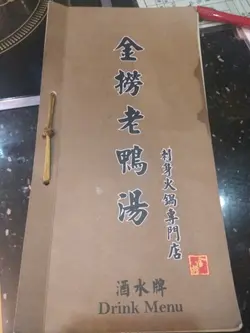 金撈老鴨湯
村身火鍋專門店
酒水牌
Drink Menu